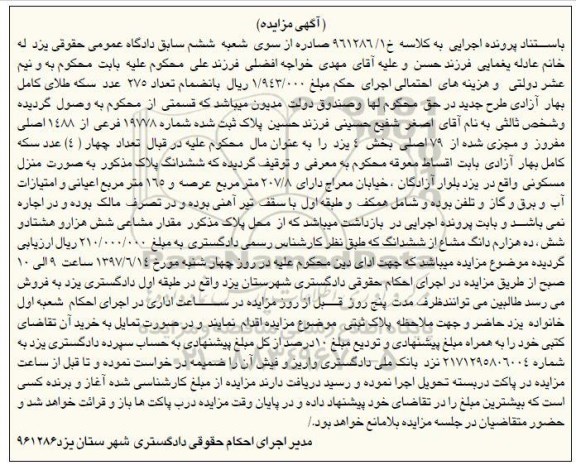 ( آگهی مزایده )
باستناد پرونده اجرایی به کلاسه خ۹۶۱۲۸۶/۱ صادره از سوی شعبه ششم سابق دادگاه عمومی حقوقی یزد له
خانم عادله یغمایی فرزند حسن و علیه آقای مهدی خواجه افضلی فرزند علی محکوم علیه بابت محکوم به و نیم
عشر دولتی و هزینه های احتمالی اجرای حکم مبلغ ۱/۹۴۳/۰۰۰ ریال بانضمام تعداد ۲۷۵ عدد سکه طلای کامل
بهار آزادی طرح جدید در حق محکوم لها و صندوق دولت مدیون میباشد که قسمتی از محکوم به وصول گردیده
وشخص ثالثی به نام آقای اصغر شفیع حسینی فرزند حسین پلاک ثبت شده شماره ۱۹۷۷۸ فرعی از ۱۴۸۸ اصلی
مفروز و مجزی شده از ۷۹ اصلی بخش ۴ یزد را به عنوان مال محکوم علیه در قبال تعداد چهار ( ۴) عدد سکه
کامل بهار آزادی بابت اقساط معوقه محکوم به معرفی و توقیف گردیده که ششدانگ پلاک مذکور به صورت منزل
مسکونی واقع در یزد بلوار آزادگان ، خیابان معراج دارای ۲۰۷/۸ متر مربع عرصه و ۱۶۵ متر مربع اعیانی و امتیازات
آب و برق و گاز و تلفن بوده و شامل همکف و طبقه اول با سقف تیر آهنی بوده و در تصرف مالک بوده و در اجاره
نمی باشد و بابت پرونده اجرایی در بازداشت میباشد که از محل پلاک مذکور مقدار مشاعی شش هزارو هشتادو
شش ، ده هزارم دانگ مشاع از ششدانگ که طبق نظر کارشناس رسمی دادگستری به مبلغ ۲۱۰/۰۰۰/۰۰۰ ریال ارزیابی
گردیده موضوع مزایده میباشد که جهت ادای دین محکوم علیه در روز چهار شنبه مورخ ۱۳۹۷/۶/۱۴ ساعت ۹ الی ۱۰
صبح از طریق مزایده در اجرای احکام حقوقی دادگستری شهرستان یزد واقع در طبقه اول دادگستری یزد به فروش
می رسد طالبین می توانندظرف مدت پنج روز قبل از روز مزایده در ساعات اداری در اجرای احکام شعبه اول
خانواده یزد حاضر و جهت ملاحظه پلاک ثبتی موضوع مزایده اقدام نمایند و در صورت تمایل به خرید آن تقاضای
کتبی خود را به همراه مبلغ پیشنهادی و تودیع مبلغ ۱۰درصد از کل مبلغ پیشنهادی به حساب سپرده دادگستری یزد به
شماره ۲۱۷۱۲۹۵۸۰۶۰۰۴ نزد بانک ملی دادگستری واریز و فیش آن را ضمیمه درخواست نموده و تا قبل از ساعت
مزایده در پاکت دربسته تحویل اجرا نموده و رسید دریافت دارند مزایده از مبلغ کارشناسی شده آغاز و برنده کسی
است که بیشترین مبلغ را در تقاضای خود پیشنهاد داده و در پایان وقت مزایده درب پاکت ها باز و قرائت خواهد شد و
حضور متقاضیان در جلسه مزایده بلامانع خواهد بود./
مدیر اجرای احکام حقوقی دادگستری شهرستان یزد۹۶۱۲۸۶